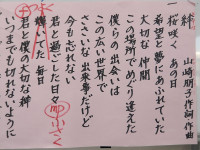 絆
山崎朋子 作詞・作曲
一 桜咲く あの日
希望と夢にあふれていた
大切な 仲間
この場所でめぐり逢えた
僕らの出会いは
この広い世界で
ささいな出来事だけど
今も忘れない
君と過ごした日々
輝いてた 毎日
君と僕の大切な絆
いつまでも切れないように
mp